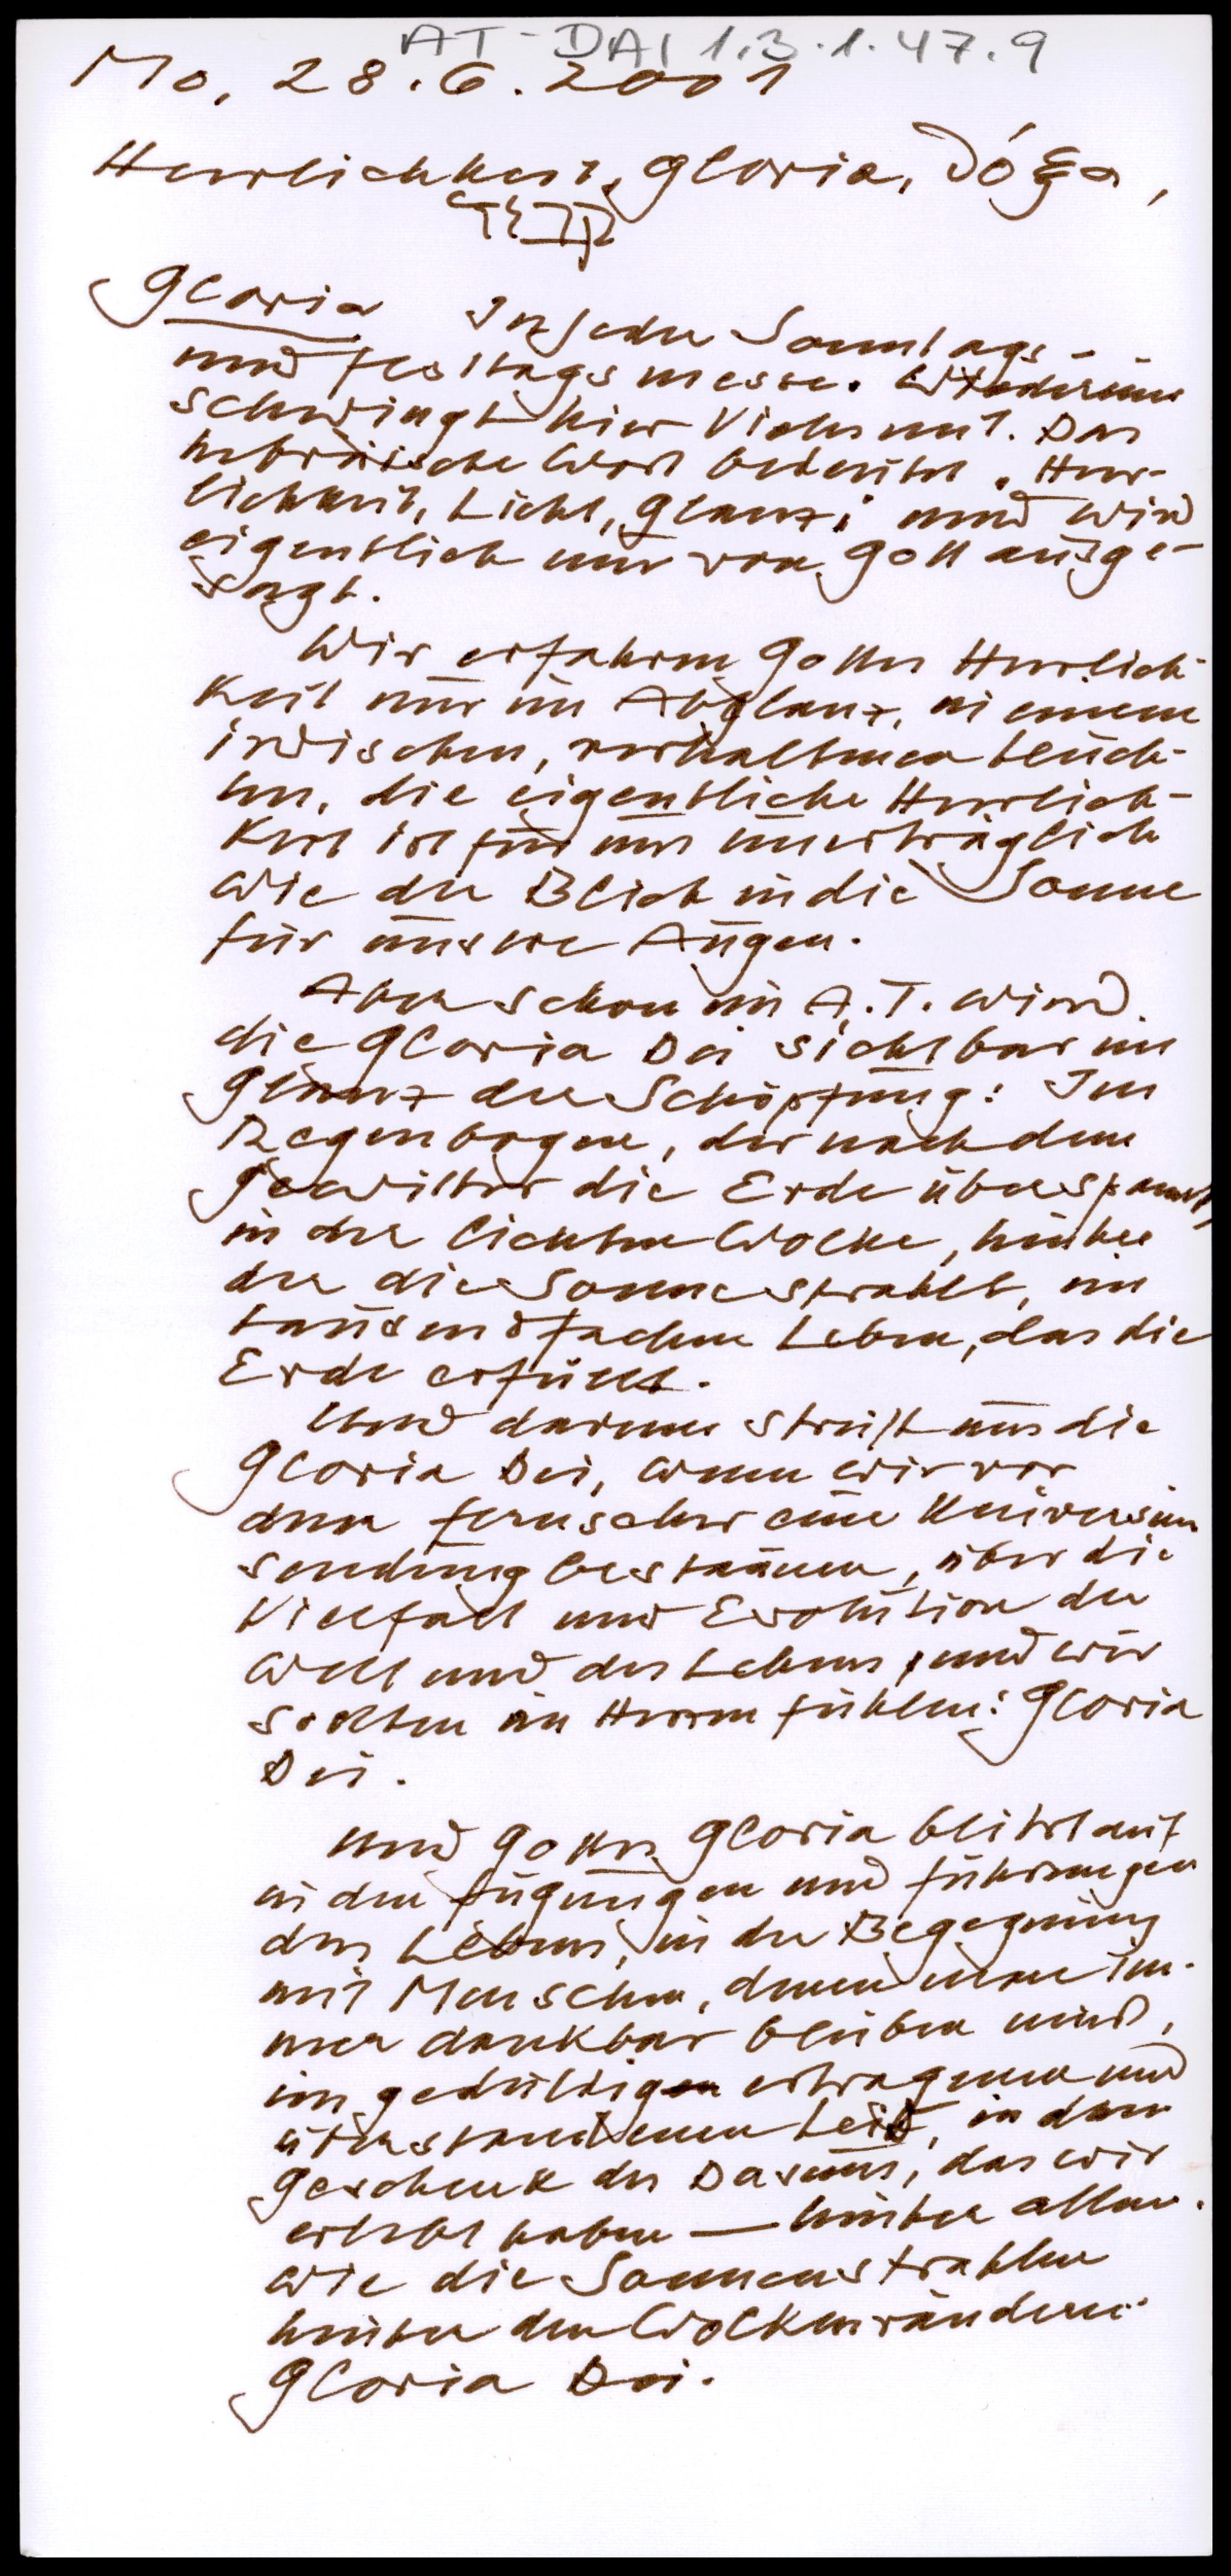 AT-DAI 1.3.1.47.9
Mo, 28.6.2001
Herrlichkeit, Gloria, Dóξa,
Gloria In jeder Sonntags-
und Festtagsmesse. Wiederum
schwingt hier Vieles mit. Das
hebräische Wort bedeutet „Herr-
lichkeit, Licht, Glanz" und wird
eigentlich nur von Gott ausge-
sagt.
Wir erfahren Gottes Herrlich-
keit nur im Abglanz, in einem
irdischen, verhaltenen Leuch-
ten, die eigentliche Herrlich-
keit ist für uns unerträglich
wie der Blick in die Sonne
für unsere Augen.
Aber schon im A.T. wird
die Gloria Dei sichtbar im
Glanz der Schöpfung: Im
Regenbogen, der nach dem
Gewitter die Erde überspannt,
in der lichten Wolke, hinter
der die Sonne strahlt, im
tausendfachen Leben, das die
Erde erfüllt.
Und darum streift uns die
Gloria Dei, wenn wir vor
dem Fernseher eine Universum
sendung bestaunen, über die
Vielfalt und Evolution der
Welt und des Lebens, und wir
sollten im Herzen fühlen: Gloria
Dei.
Und Gottes Gloria blitzt auf
in den Fügungen und Führungen
des Lebens, in der Begegnung
mit Menschen, denen man im-
mer dankbar bleiben wird,
im geduldig ertragenen und
überstandenen Leid, in dem
Geschenk des Daseins, das wir
erlebt haben — hinter allem.
wie die Sonnenstrahlen
hinter den Wolkenrändern:
Gloria Dei.